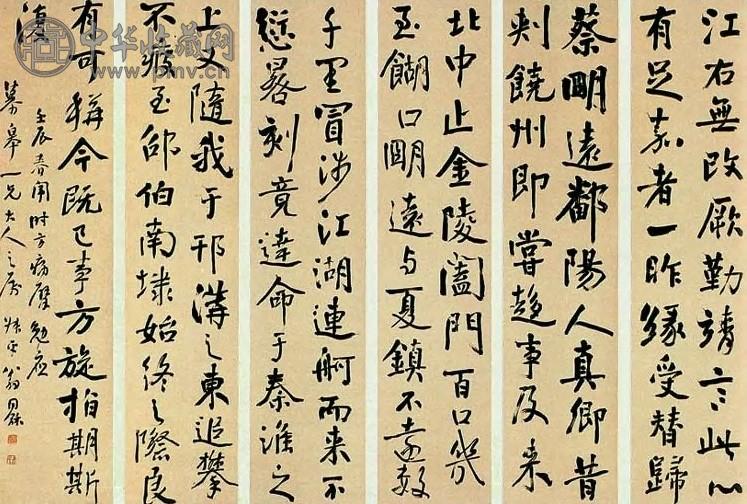 江右無改厥勤靖言此心
有足嘉者一昨緣受替歸
蔡明遠鄱陽人真卿昔
刺饒州即嘗趨事及來
北中止金陵闔門百口幾
至餬口明遠与夏鎮不遠數
千里冒涉江湖連舸而來不
愆晷刻竟達命于秦淮之
上又隨我于邗溝之東追攀
不疲至邵伯南埭始終之際良
有可稱今既已事方旋指期斯
復
壬辰春闈時方病臂勉應
慕皋一兄大人之屬 叔平翁同龢
中华收藏网
www.pmv.cn